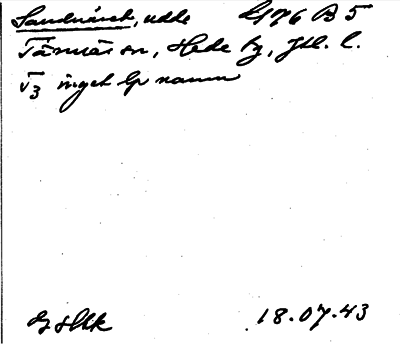 Sandnäset, udde L176 B5
Tännäs sn, Hede tg, Jtl. l.
V3 inget lp namn
18.07.43